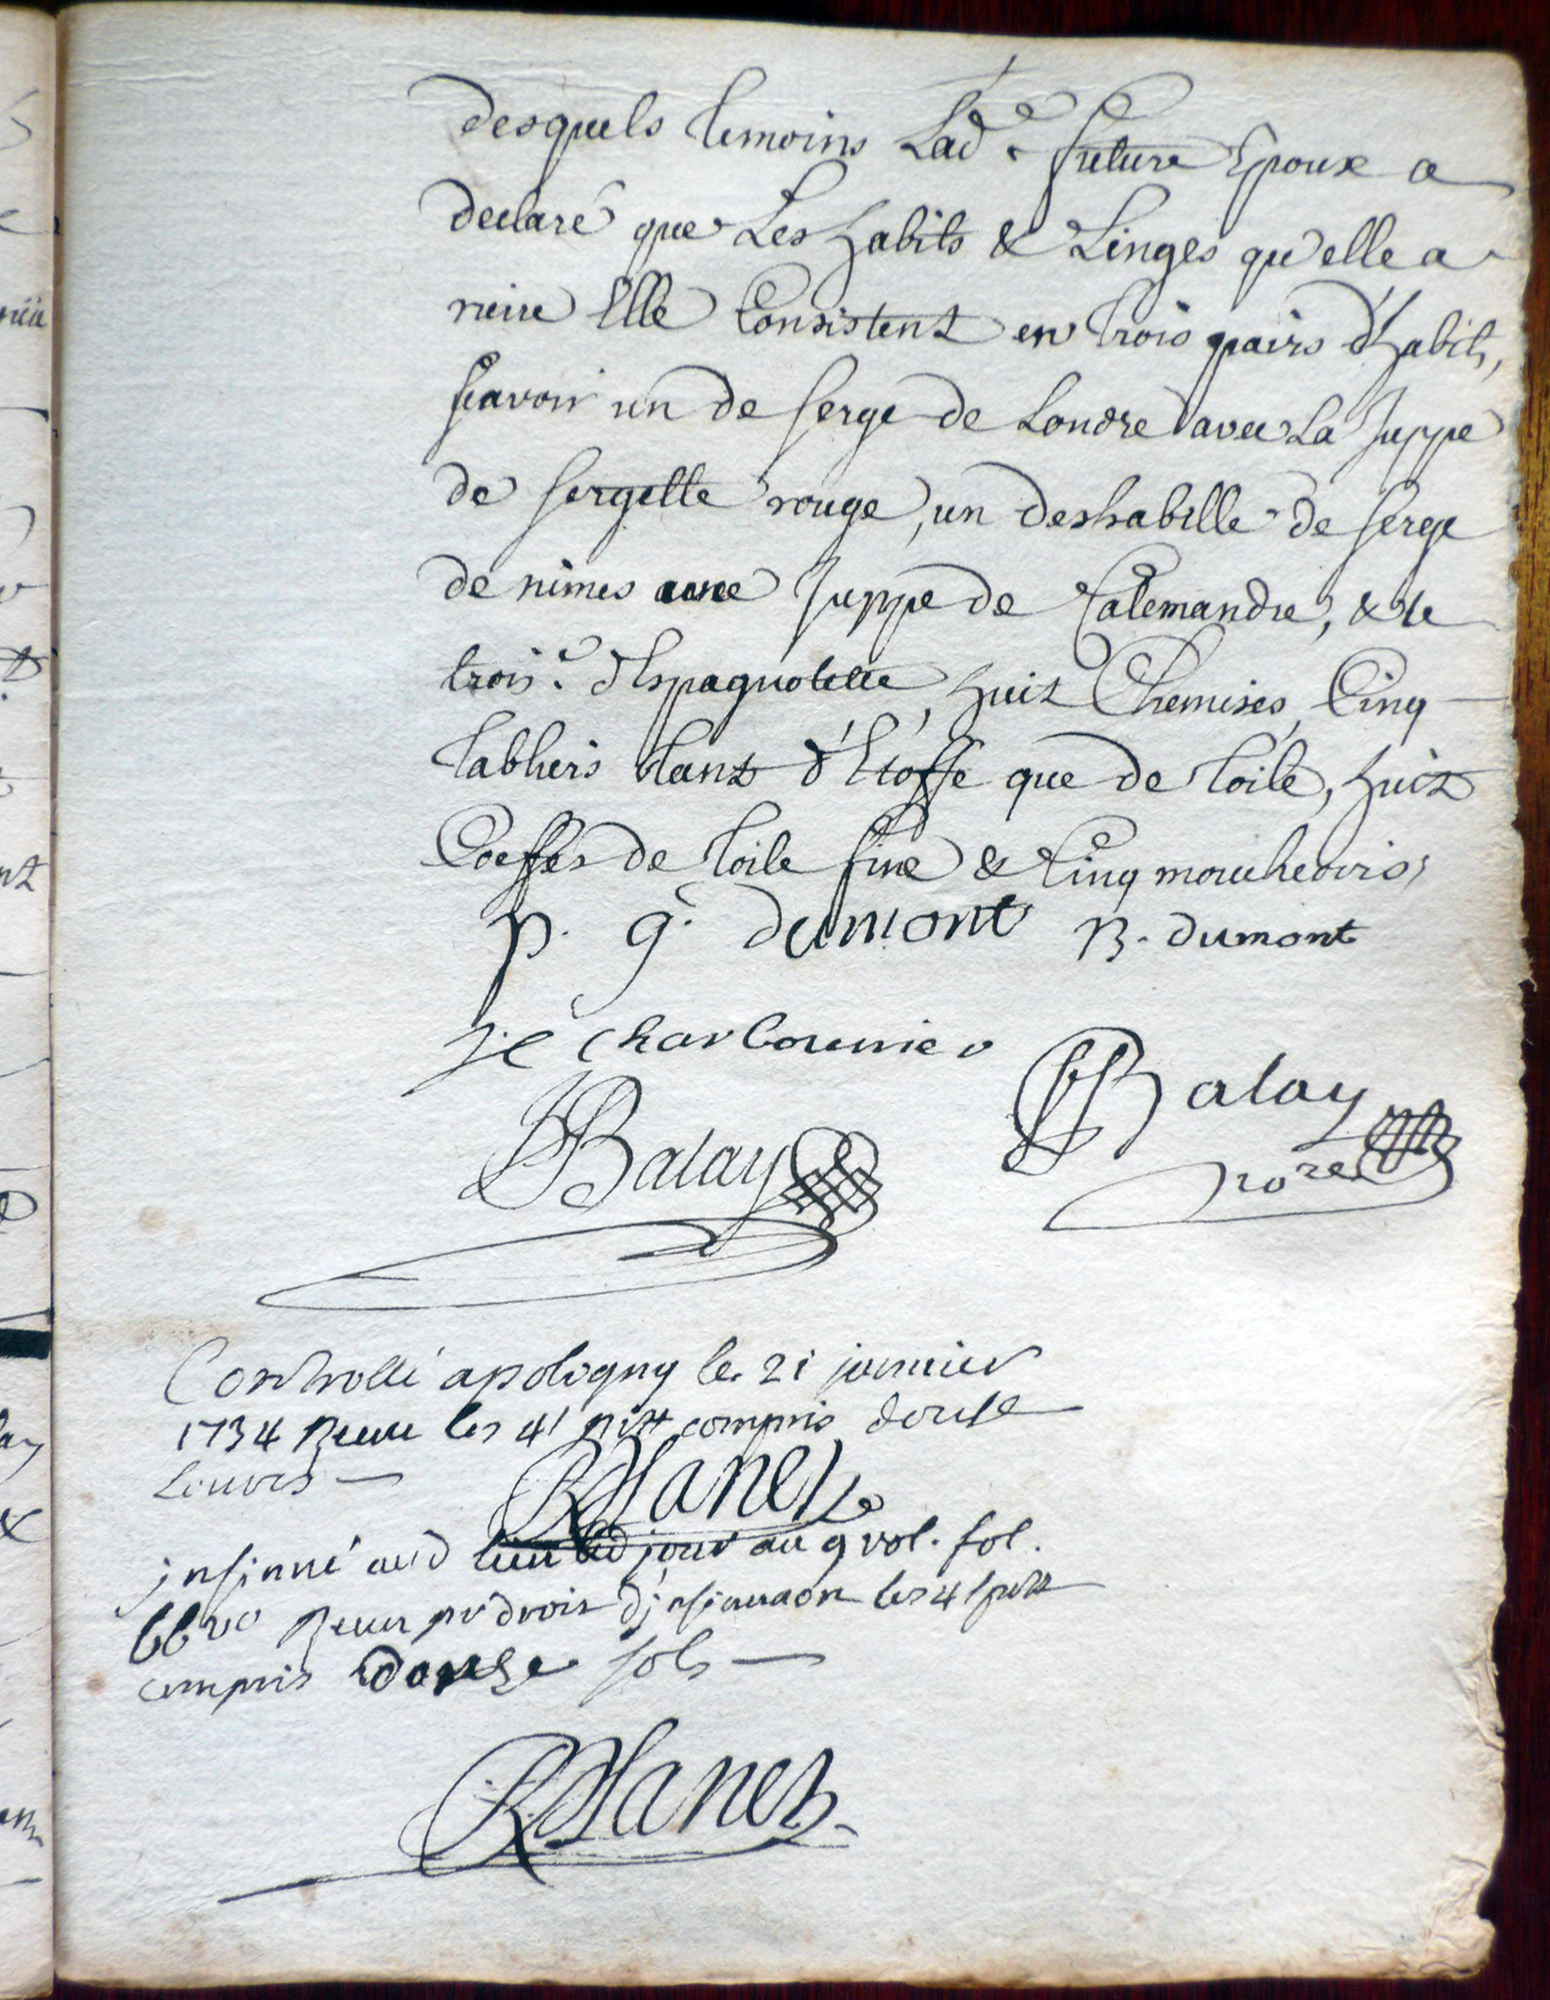 desquels temoins Lad.e future Epouse a
declaré que Les habits & Linges qu'elle a
riere Elle Consistent en trois pairs d'habits,
scavoir un de serge de Londre avec La Juppe
de sergette rouge, un deshabille de serge
de nimes une Juppe de Calemandre, & le
trois.e d'Espagnolette, huit Chemises, Cinq
tabliers tant d'Etoffe que de toile, huit
Coeffes de toile fine & Cinq mouchoirs,
p. g. dumont B. dumont
J. C charbounier
Balay
Balay
nore
Controllé a poligny le 21 janvier
1734 Reçu les 4s pr tt compris douse
Linvers
insinué aud lieu led jour au 9 vol. fol.
66 vo Reçu pr droit d'insinuaon les 4s pr tt
compris douse sols